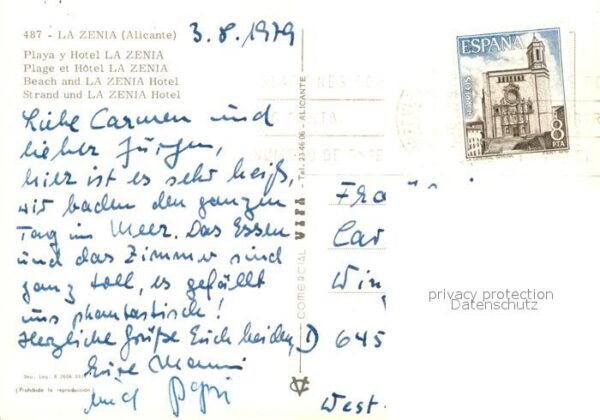 487 - LA ZENIA (Alicante) 3.8.1979
Playa y Hotel LA ZENIA
Plage et Hôtel LA ZENIA
Beach and LA ZENIA Hotel
Strand und LA ZENIA Hotel
Liebe Carmen und
lieber Jürgen,
hier ist es sehr heiß,
wir baden den ganzen
Tag im Meer. Das Essen
und das Zimmer sind
ganz toll, es gefällt
uns phantastisch!
Herzliche Grüße Euch beiden,
Eure Mammi
und Papi
Dep. Leg. B.
(Prohibida la reproducción)
COMERCIAL VIPA - Tel. 23 46 06 - ALICANTE
ESPAÑA
CORREOS
8
PTA
Fra
Car
Win
D 645
West
privacy protection
Datenschutz